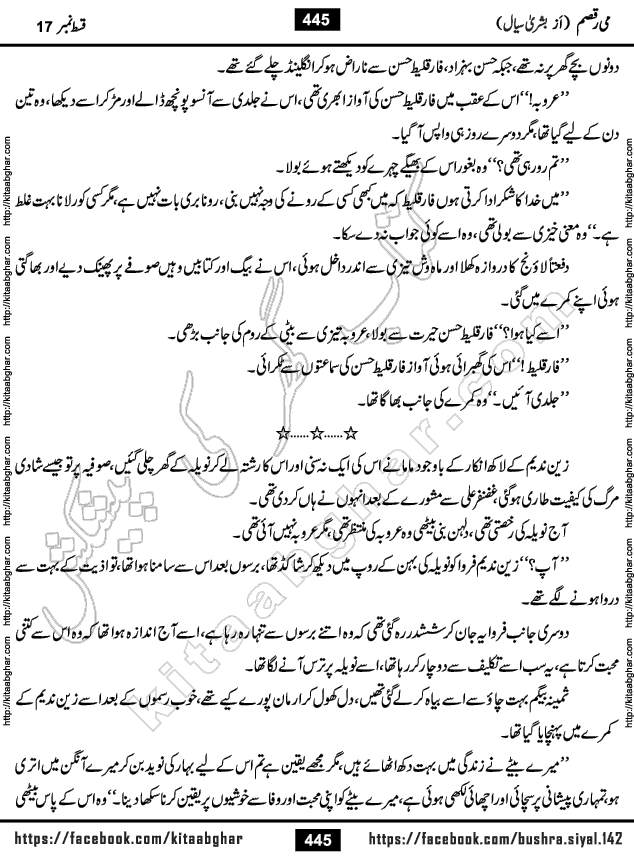 می رقصم (از بشریٰ سیال)
445
قسط نمبر 17
دونوں بچے گھر پر نہ تھے، جبکہ حسن بہزاد، فارقلیط حسن سے ناراض ہو کر انگلینڈ چلے گئے تھے۔
’’عروبہ!‘‘اس کے عقب میں فارقلیط حسن کی آواز ابھری تھی، اس نے جلدی سے آنسو پونچھ ڈالے اور مڑ کر اسے دیکھا، وہ تین
دن کے لیے گیا تھا، مگر دوسرے روز ہی واپس آ گیا۔
’’تم رو رہی تھی؟‘‘ وہ بغور اس کے بھیگے چہرے کو دیکھتے ہوئے بولا۔
’’میں خدا کا شکر ادا کرتی ہوں فارقلیط کہ میں کبھی کسی کے رونے کی وجہ نہیں بنی، رونا بری بات نہیں ہے، مگر کسی کو رلانا بہت غلط
ہے۔‘‘ وہ معنی خیزی سے بولی تھی، وہ اسے کوئی جواب نہ دے سکا۔
دفعتاً لاؤنج کا دروازہ کھلا اور ماہ وش تیزی سے اندر داخل ہوئی، اس نے بیگ اور کتابیں وہیں صوفے پر پھینک دیے اور بھاگتی
ہوئی اپنے کمرے میں گئی۔
’’اسے کیا ہوا؟‘‘ فارقلیط حسن حیرت سے بولا، عروبہ تیزی سے بیٹی کے روم کی جانب بڑھی۔
’’فارقلیط!‘‘ اس کی گھبرائی ہوئی آواز فارقلیط حسن کی سماعتوں سے ٹکرائی۔
’’جلدی آئیں۔‘‘ وہ کمرے کی جانب بھاگا تھا۔
☆......☆......☆
زین ندیم کے لاکھ انکار کے باوجود ماما نے اس کی ایک نہ سنی اور اس کا رشتہ لے کر نویلہ کے گھر چلی گئیں، صوفیہ پر تو جیسے شادی
مرگ کی کیفیت طاری ہو گئی، غضنفر علی سے مشورے کے بعد انہوں نے ہاں کر دی تھی۔
آج نویلہ کی رخصتی تھی، دلہن بنی بیٹھی وہ عروبہ کی منتظر تھی، مگر عروبہ نہیں آئی تھی۔
’’آپ؟‘‘ زین ندیم فروا کو نویلہ کی بہن کے روپ میں دیکھ کر شاکڈ تھا، برسوں بعد اس سے سامنا ہوا تھا، تو اذیت کے بہت سے
در وا ہونے لگے تھے۔
دوسری جانب فروا یہ جان کر ششدر رہ گئی تھی کہ وہ اتنے برسوں سے تنہا رہ رہا ہے، اسے آج اندازہ ہوا تھا کہ وہ اس سے کتنی
محبت کرتا ہے، یہ سب اسے تکلیف سے دوچار کر رہا تھا، اسے نویلہ پر ترس آنے لگا تھا۔
ثمینہ بیگم بہت چاؤ سے اسے بیاہ کر لے گئی تھیں، دل کھول کر ارمان پورے کیے تھے، خوب رسموں کے بعد اسے زین ندیم کے
کمرے میں پہنچایا گیا تھا۔
’’میرے بیٹے نے زندگی میں بہت دکھ اٹھائے ہیں، مگر مجھے یقین ہے تم اس کے لیے بہار کی نوید بن کر میرے آنگن میں اتری
ہو، تمہاری پیشانی پر سچائی اور اچھائی لکھی ہوئی ہے، میرے بیٹے کو اپنی محبت اور وفا سے خوشیوں پر یقین کرنا سکھا دینا۔‘‘ وہ اس کے پاس بیٹھی
https://facebook.com/kitaabghar
445
https://facebook.com/bushra.siyal.142
http://kitaabghar.com http://kitaabghar.com http://kitaabghar.com http://kitaabghar.com http://kitaabghar.com http://kitaabghar.com
http://kitaabghar.com http://kitaabghar.com http://kitaabghar.com http://kitaabghar.com http://kitaabghar.com http://kitaabghar.com
کتاب گھر کی پیشکش
kitaabghar.com